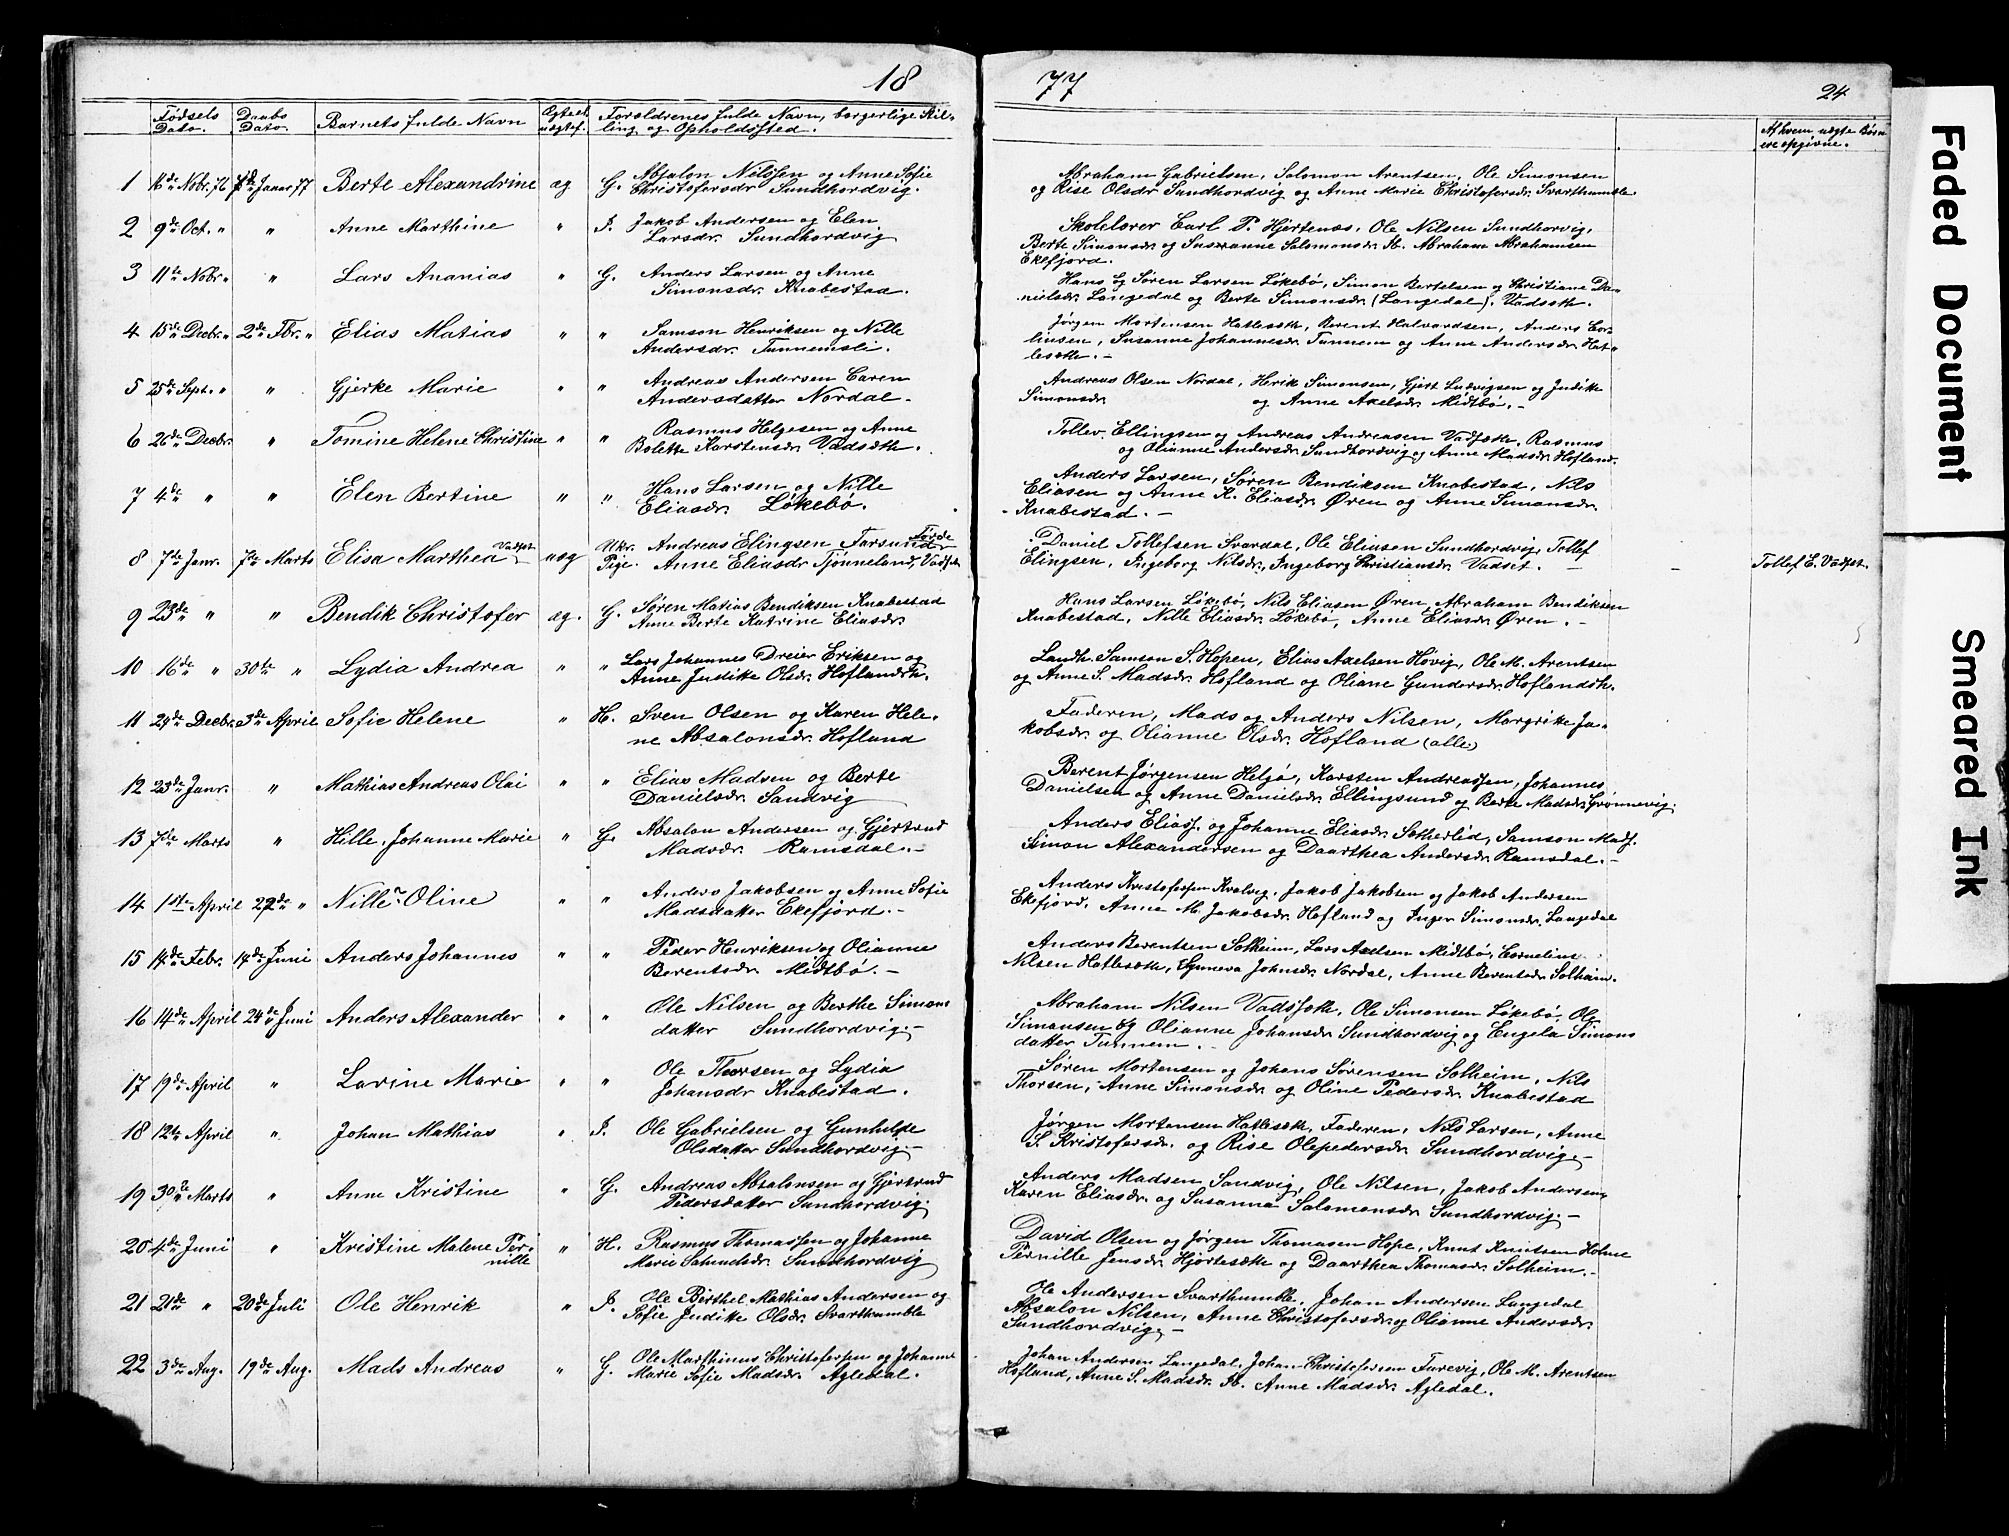 18
77
24
Fødsels Dato.
Daabs Dato
Barnets fulde Navn
Ægte el. uægtef.
Forældrenes fulde Navn, borgerlige Stil-
ling og Opholdssted.
Af hvem uægte Børn
ere opgivne.
1 16de Nobr. 76 Januar 77 Berte Alexandrine æg G. Absalon Nilssen og Anne Sofie
Christofersdr Sundhordvig.
Abraham Gabrielsen, Salomon Arentsen, Ole Simonsen
og Rise Olsdr Sundhordvig og Anne Marie Christofersdr. Svarthumle
2 9de Oct. " " Anne Marthine " I. Jakob Andersen og Elen
Larsdr. Sundhordvig
Skolelærer Carl P. Hjertenæs, Ole Nilsen Sundhorvig,
Berte Simonsdr og Susanne Salomonsdr Ib. Abraham Abrahamsen
Ekefjord.
3 11te Nobr. " " Lars Ananias " G. Anders Larsen og Anne
Simonsdr. Knabestad.
Hans og Søren Larsen Løkebø, Simon Bertelsen og Christiane Da-
nielsdr. Langedal og Berte Simonsdr (Langedal). Vadsæth.
4 15de Decbr. " 2de Fbr. " Elias Matias " " Samson Henriksen og Nille
Andersdr. Tunnemsli.
Jørgen Mortensen Hatlesæth, Berent Halvardsen, Anders Cor-
liusen, Susanne Johannesdr Tunnem og Anne Andersdr Hat-
lesæth. -
5 25de Sept. " " Gjerke Marie " " Andreas Andersen Caren
Andersdatter Nordal -
Andreas Olsen Nordal, Herik Simonsen, Gjert Ludvigsen og Judike
Simonsdr og Anne Axelsdr Midtbø. -
6 26de Decbr. " Tomine Helene Christine " " Rasmus Helgesen og Anne
Bolette Karstensdr Vadsæth.
Tollev Ellingsen og Andreas Andreasen Vadsæth, Rasmus
og Olianne Andersdr Sundhordvig og Anne Madsdr Hofland.
7 4de " " Elen Bertine " " Hans Larsen og Nille
Eliasdr. Løkebø.
Anders Larsen, Søren Bendiksen Knabestad, Nils
Eliasen og Anne K. Eliasdr. Øren og Anne Simonsdr.
Knabestad. -
8 7de Janr. 7de Marts Elisa Marthea Vadset uæg Ukr. Andreas Elingsen Farsund Førde
Pige. Anne Eliasdr Tjønneland, Vadsæt
Daniel Tollefsen Svardal, Ole Eliasen Sundhordvig, Tollef
Elingsen, Ingeborg Nilsdr., Ingeborg Christiansdr. Vadset. -
Tollef E. Vadset.
9 23de " " Bendik Christofer æg. G. Søren Matias Bendiksen Knabestad
Anne Berte Katrine Eliasdr.
Hans Larsen Løkebø, Nils Eliasen Øren, Abraham Bendiksen
Knabestad, Nille Eliasdr Løkebø, Anne Eliasdr Øren. -
10 16de " 30te " Lydia Andrea " " Lars Johannes Dreier Eriksen og
Anne Judikte Olsdr. Hoflandsh.
Landh. Samson S. Hopen, Elias Axelsen Høvig, Ole M. Arentsen
og Anne S. Madsdr. Hofland og Oliane Gundersdr. Hoflandsh.
11 24de Decbr. 3de April Sofie Helene " H. Sven Olsen og Karen Hele-
ne Absalonsdr. Hofland
Faderen, Mads og Anders Nilsen, Margrike Ja-
kobsdr. og Olianne Olsdr. Hofland (alle)
12 23de Janr. " Mathias Andreas Olai " " Elias Madsen og Berte
Danielsdr. Sandvig
Berent Jørgensen Helgø, Karsten Andreassen, Johannes
Danielsen og Anne Danielsdr. Ellingsund og Berte Madsdr. Grønnevig.
13 7de Marts " Hille Johanne Marie " G. Absalon Andersen og Gjertrud
Madsdr. Ramsdal. -
Anders Elias. og Johanne Eliasdr Sætherlid, Samson Mads.
Simon Alexandersen og Daarthea Andersdr Ramsdal. -
14 1ste April 22de " Nille Oline " " Anders Jakobsen og Anne Sofie
Madsdatter Ekefjord. -
Anders Kristofersen Kvalvig, Jakob Jakobsen og Jakob Andersen
Ekefjord, Anne M. Jakobsdr. Hofland og Inger Simonsdr. Langedal
15 14de Febr. 14de Juni Anders Johannes " " Peder Henriksen og Olianne
Berentsdr. Midtbø. -
Anders Berentsen Solheim, Lars Axelsen Midtbø, Cornelius
Nilsen Hatlesæth, Gunera Johnsdr. Nordal, Anne Berentsdr. Solheim.
16 14de April 24de Juni Anders Alexander " " Ole Nilsen og Berthe Simons
datter Sundhordvig. -
Abraham Nilsen Vadssæth, Ole Simonsen Løkebø, Ole
Simonsen og Olianne Johansdr. Sundhordvig og Engela Simons
datter Tunnem. -
17 19de April " Larine Marie " " Ole Thorsen og Lydia
Johansdr Knabestad.
Søren Mortensen og Johans Sørensen Solheim, Nils
Thorsen, Anne Simonsdr. og Oline Pedersdr. Knabestad
18 12te April " Johan Mathias " I. Ole Gabrielsen og Gunhilde
Olsdatter Sundhordvig -
Jørgen Mortensen Hatlesæth, Faderen, Nils Larsen, Anne
S. Kristofersdr. og Rise Olepedersdr. Sundhordvig. -
19 30te Marts " Anne Kristine " G. Andreas Absalonsen og Gjertrud
Pedersdatter Sundhordvig.
Anders Madsen Sandvig, Ole Nilsen, Jakob Andersen,
Karen Eliasdr. og Susanna Salomonsdr Sundhordvig. -
20 4de Juni " Kristine Malene Per-
nille " H. Rasmus Thomassen og Johanne
Marie Samuelsdr. Sundhordvig
David Olsen og Jørgen Thomasen Hope, Knut Knutsen Holme
Pernille Jensdr Hjortesæth og Daarthea Thomasdr. Solheim. -
21 21de " 20de Juli Ole Henrik " I. Ole Berthel Mathias Andersen og
Sofie Judikte Olsdr. Svarthumble
Ole Andersen Svarthumble, Johan Andersen Langedal
Absalon Nilsen, Anne Christofersdr og Olianne Andersdr.
Sundhordvig. -
22 3de Aug. 19de Aug. Mads Andreas " G. Ole Marthinus Christofersen og Johanne
Marie Sofie Madsdr. Agledal.
Johan Andersen Langedal, Johan Christofersen Furevig, Ole M. Arentsen
Hofland, Anne S. Madsdr. Ib. Anne Madsdr Agledal.
Faded Document
Smeared Ink